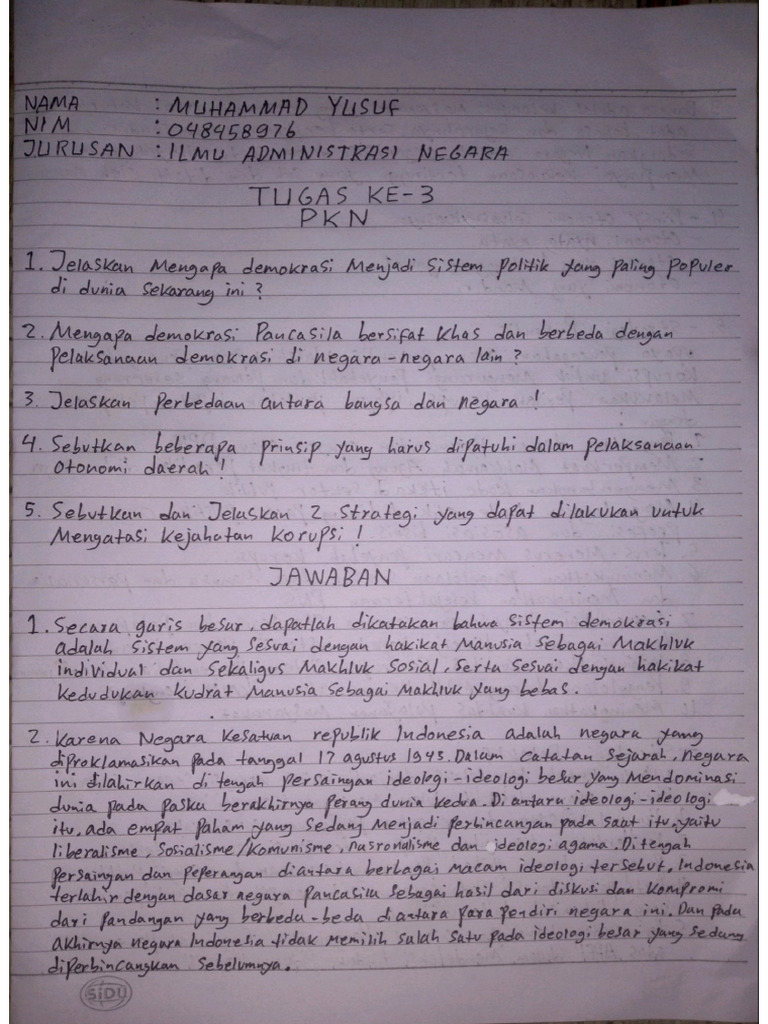 NAMA : MUHAMMAD YUSUF
NIM : 048458976
JURUSAN : ILMU ADMINISTRASI NEGARA
TUGAS KE-3
PKN
1. Jelaskan Mengapa demokrasi Menjadi Sistem politik yang paling populer
di dunia sekarang ini ?
2. Mengapa demokrasi Pancasila bersifat khas dan berbeda dengan
pelaksanaan demokrasi di negara-negara lain ?
3. Jelaskan Perbedaan antara bangsa dan negara !
4. Sebutkan beberapa prinsip yang harus dipatuhi dalam pelaksanaan
otonomi daerah !
5. Sebutkan dan Jelaskan 2 Strategi yang dapat dilakukan untuk
Mengatasi Kejahatan Korupsi !
JAWABAN
1. Secara garis besar, dapatlah dikatakan bahwa sistem demokrasi
adalah sistem yang sesuai dengan hakikat Manusia sebagai Makhluk
individual dan sekaligus Makhluk Sosial. Serta sesuai dengan hakikat
kedudukan kudrat Manusia sebagai Makhluk yang bebas.
2. Karena Negara Kesatuan republik Indonesia adalah negara yang
diproklamasikan pada tanggal 17 agustus 1945. Dalam catatan sejarah, negara
ini dilahirkan di tengah persaingan ideologi-ideologi besar yang Mendominasi
dunia pada paska berakhirnya perang dunia kedua. Di antara ideologi-ideologi
itu, ada empat paham yang sedang Menjadi perbincangan pada saat itu, yaitu
liberalisme, Sosialisme/Komunisme, nasionalisme dan ideologi agama. Ditengah
persaingan dan peperangan diantara berbagai macam ideologi tersebut, Indonesia
terlahir dengan dasar negara Pancasila sebagai hasil dari diskusi dan Kompromi
dari pandangan yang berbeda-beda diantara para pendiri negara ini. Dan pada
akhirnya negara Indonesia tidak memilih salah satu pada ideologi besar yang sedang
diperbincangkan sebelumnya.
SiDU